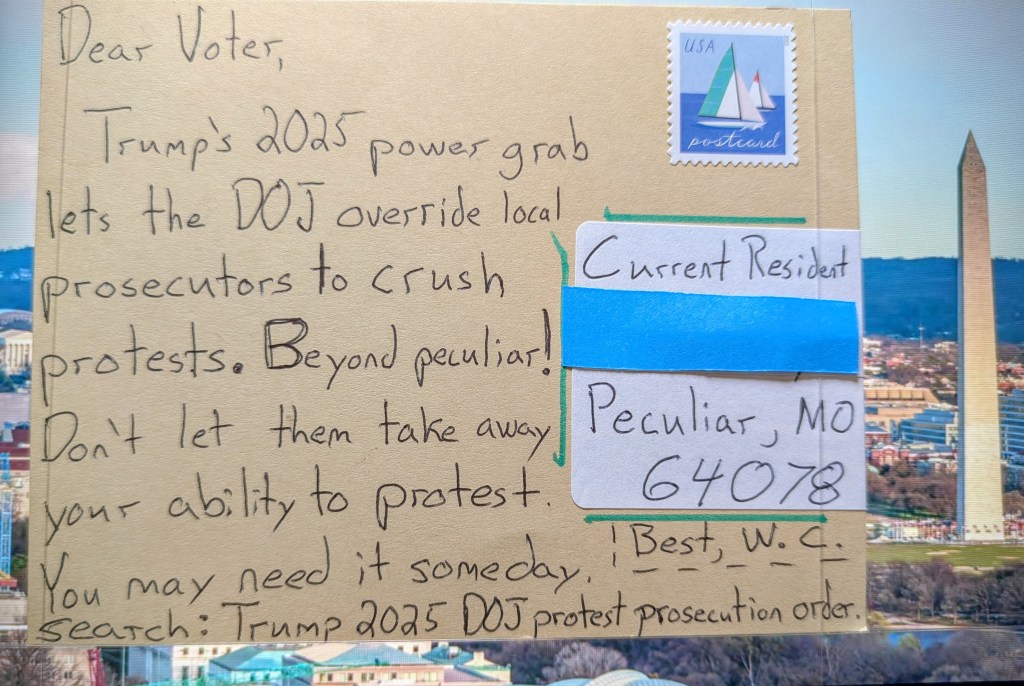 Dear Voter,
Trump's 2025 power grab
lets the DOJ override local
prosecutors to crush
protests. Beyond peculiar!
Don't let them take away
your ability to protest.
You may need it someday.
! Best, W. C.
search: Trump 2025 DOJ protest prosecution order.
USA
postcard
Current Resident
Peculiar, MO
64078